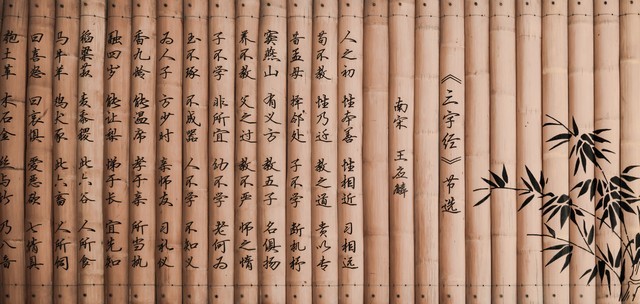 《三字经》节选
南宋 王应麟
人之初 性本善 性相近 习相远
苟不教 性乃迁 教之道 贵以专
昔孟母 择邻处 子不学 断机杼
窦燕山 有义方 教五子 名俱扬
养不教 父之过 教不严 师之惰
子不学 非所宜 幼不学 老何为
玉不琢 不成器 人不学 不知义
为人子 方少时 亲师友 习礼仪
香九龄 能温席 孝于亲 所当执
融四岁 能让梨 悌于长 宜先知
稻粱菽 麦黍稷 此六谷 人所食
马牛羊 鸡犬豕 此六畜 人所饲
曰喜怒 曰哀惧 爱恶欲 七情具
匏土革 木石金 丝与竹 乃八音